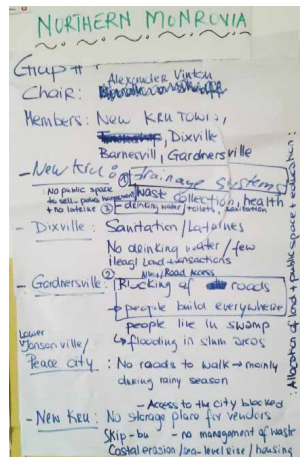 NORTHERN MONROVIA
Group #1
Alexander Vinton
Chair:
Members: NEW KRU TOWN,
Dixville
Barnesvill, Gardnersville
- New Kru: ① Drainage systems
: No public space
to sell
+ no latrine
② Wast collection, health
- drinking water / toilets, sanitation
- Dixville: Sanitation / Latrines
No drinking water / few
ilegal land transactions
② Road Access
- Gardnersville: Blocking of roads
→ people build everywhere
people live in swamp
↳ flooding in slum areas
Lower
Jonsonville/
Peace city : No roads to walk → mainly
during rainy season
- Access to the city blocked
- New Kru: No storage place for vendors
Skip-bu - no management of waste
Costal erosion / sea-level rise / housing
: Allocation of land + public space + education: